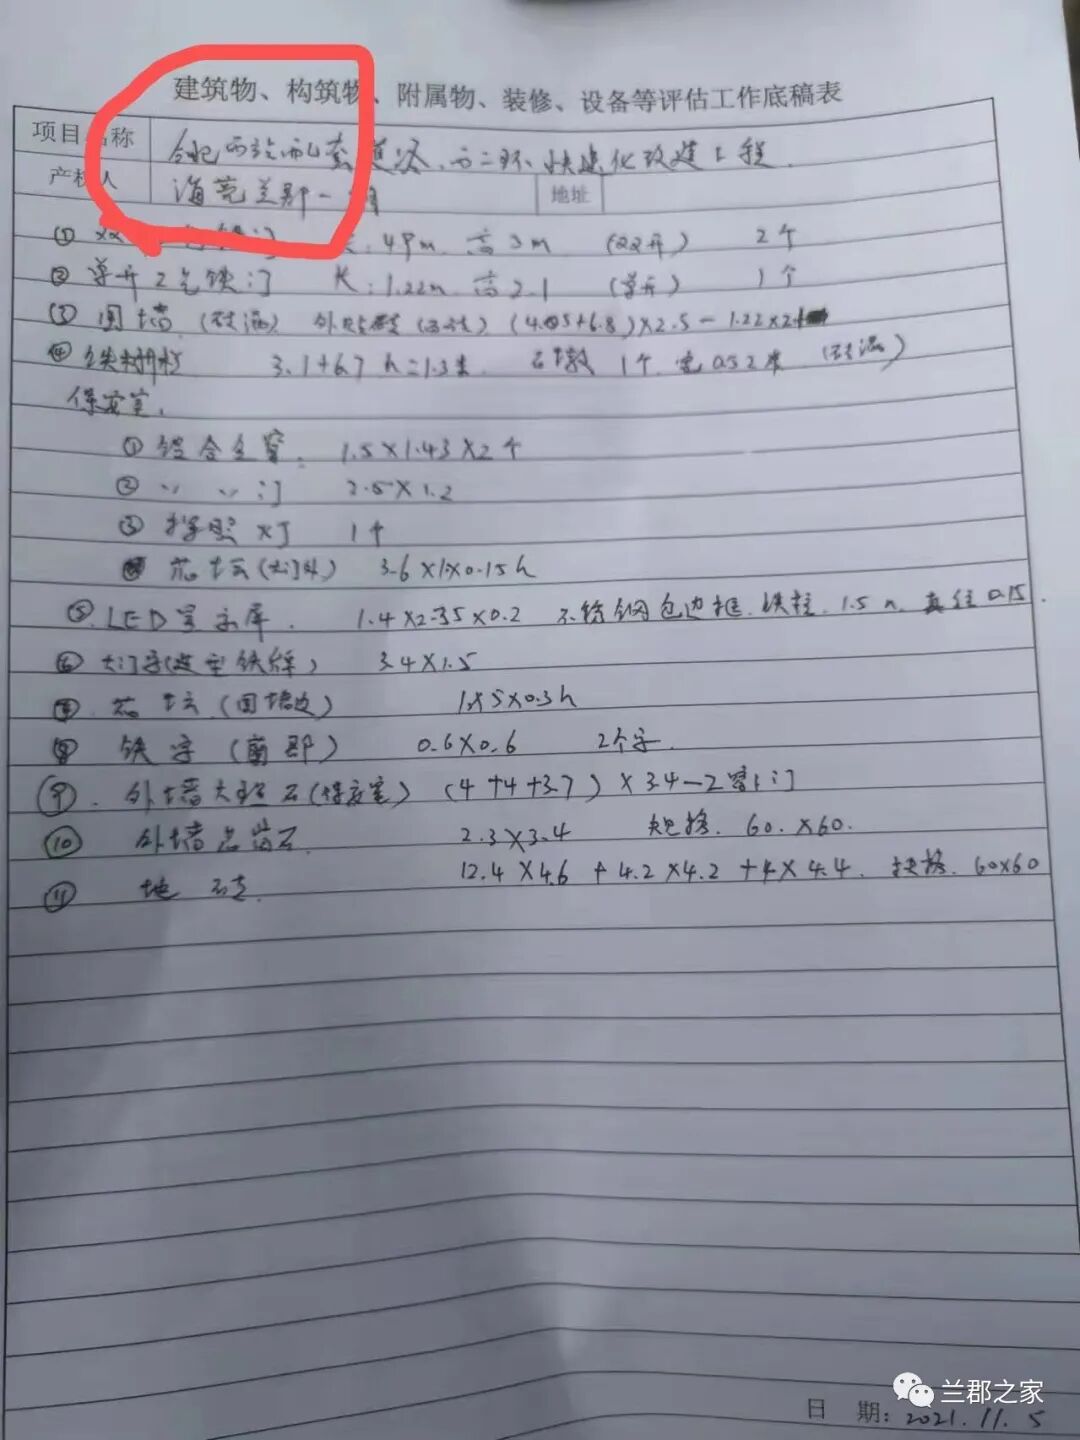 建筑物、构筑物、附属物、装修、设备等评估工作底稿表
项目名称 合肥西站配套道路、西二环快速化改造工程
产权人 海亮兰郡一期 地址
① 门 4.9m 高3m (双开) 2个
② 单开 铁门 长:1.22m 高2.1 (单开) 1个
③ 围墙 (砖混) (4.05+6.8)×2.5-1.22×2.1
④ 铁栅栏 3.1+6.7 h=1.3米 石墩 1个 宽0.52米 (砖混)
保安室
① 铝合金窗 1.5×1.43×2个
② 〃 〃 门 2.5×1.2
③ 灯 1个
花坛(大门外) 3.6×1×0.15h
⑤ LED显示屏 1.4×2.35×0.2 不锈钢包边框 铁柱 1.5m 直径0.15
⑥ 大门字(造型铁牌) 3.4×1.5
花坛(围墙边) 1×5×0.3h
⑧ 铁字(兰郡) 0.6×0.6 2个字
⑨ 外墙大理石(保安室) (4+4+3.7)×3.4-2窗1门
⑩ 外墙 石 2.3×3.4 规格 60×60
⑪ 地砖 12.4×4.6+4.2×4.2+4×4.4 规格 60×60
兰郡之家
日期:2021.11.5